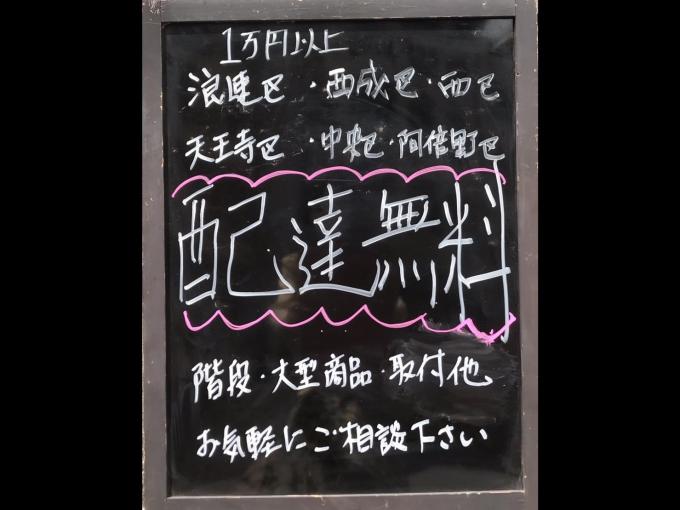 1万円以上
浪速区・西成区・西区
天王寺区・中央区・阿倍野区
配達無料
階段・大型商品・取付他
お気軽にご相談下さい